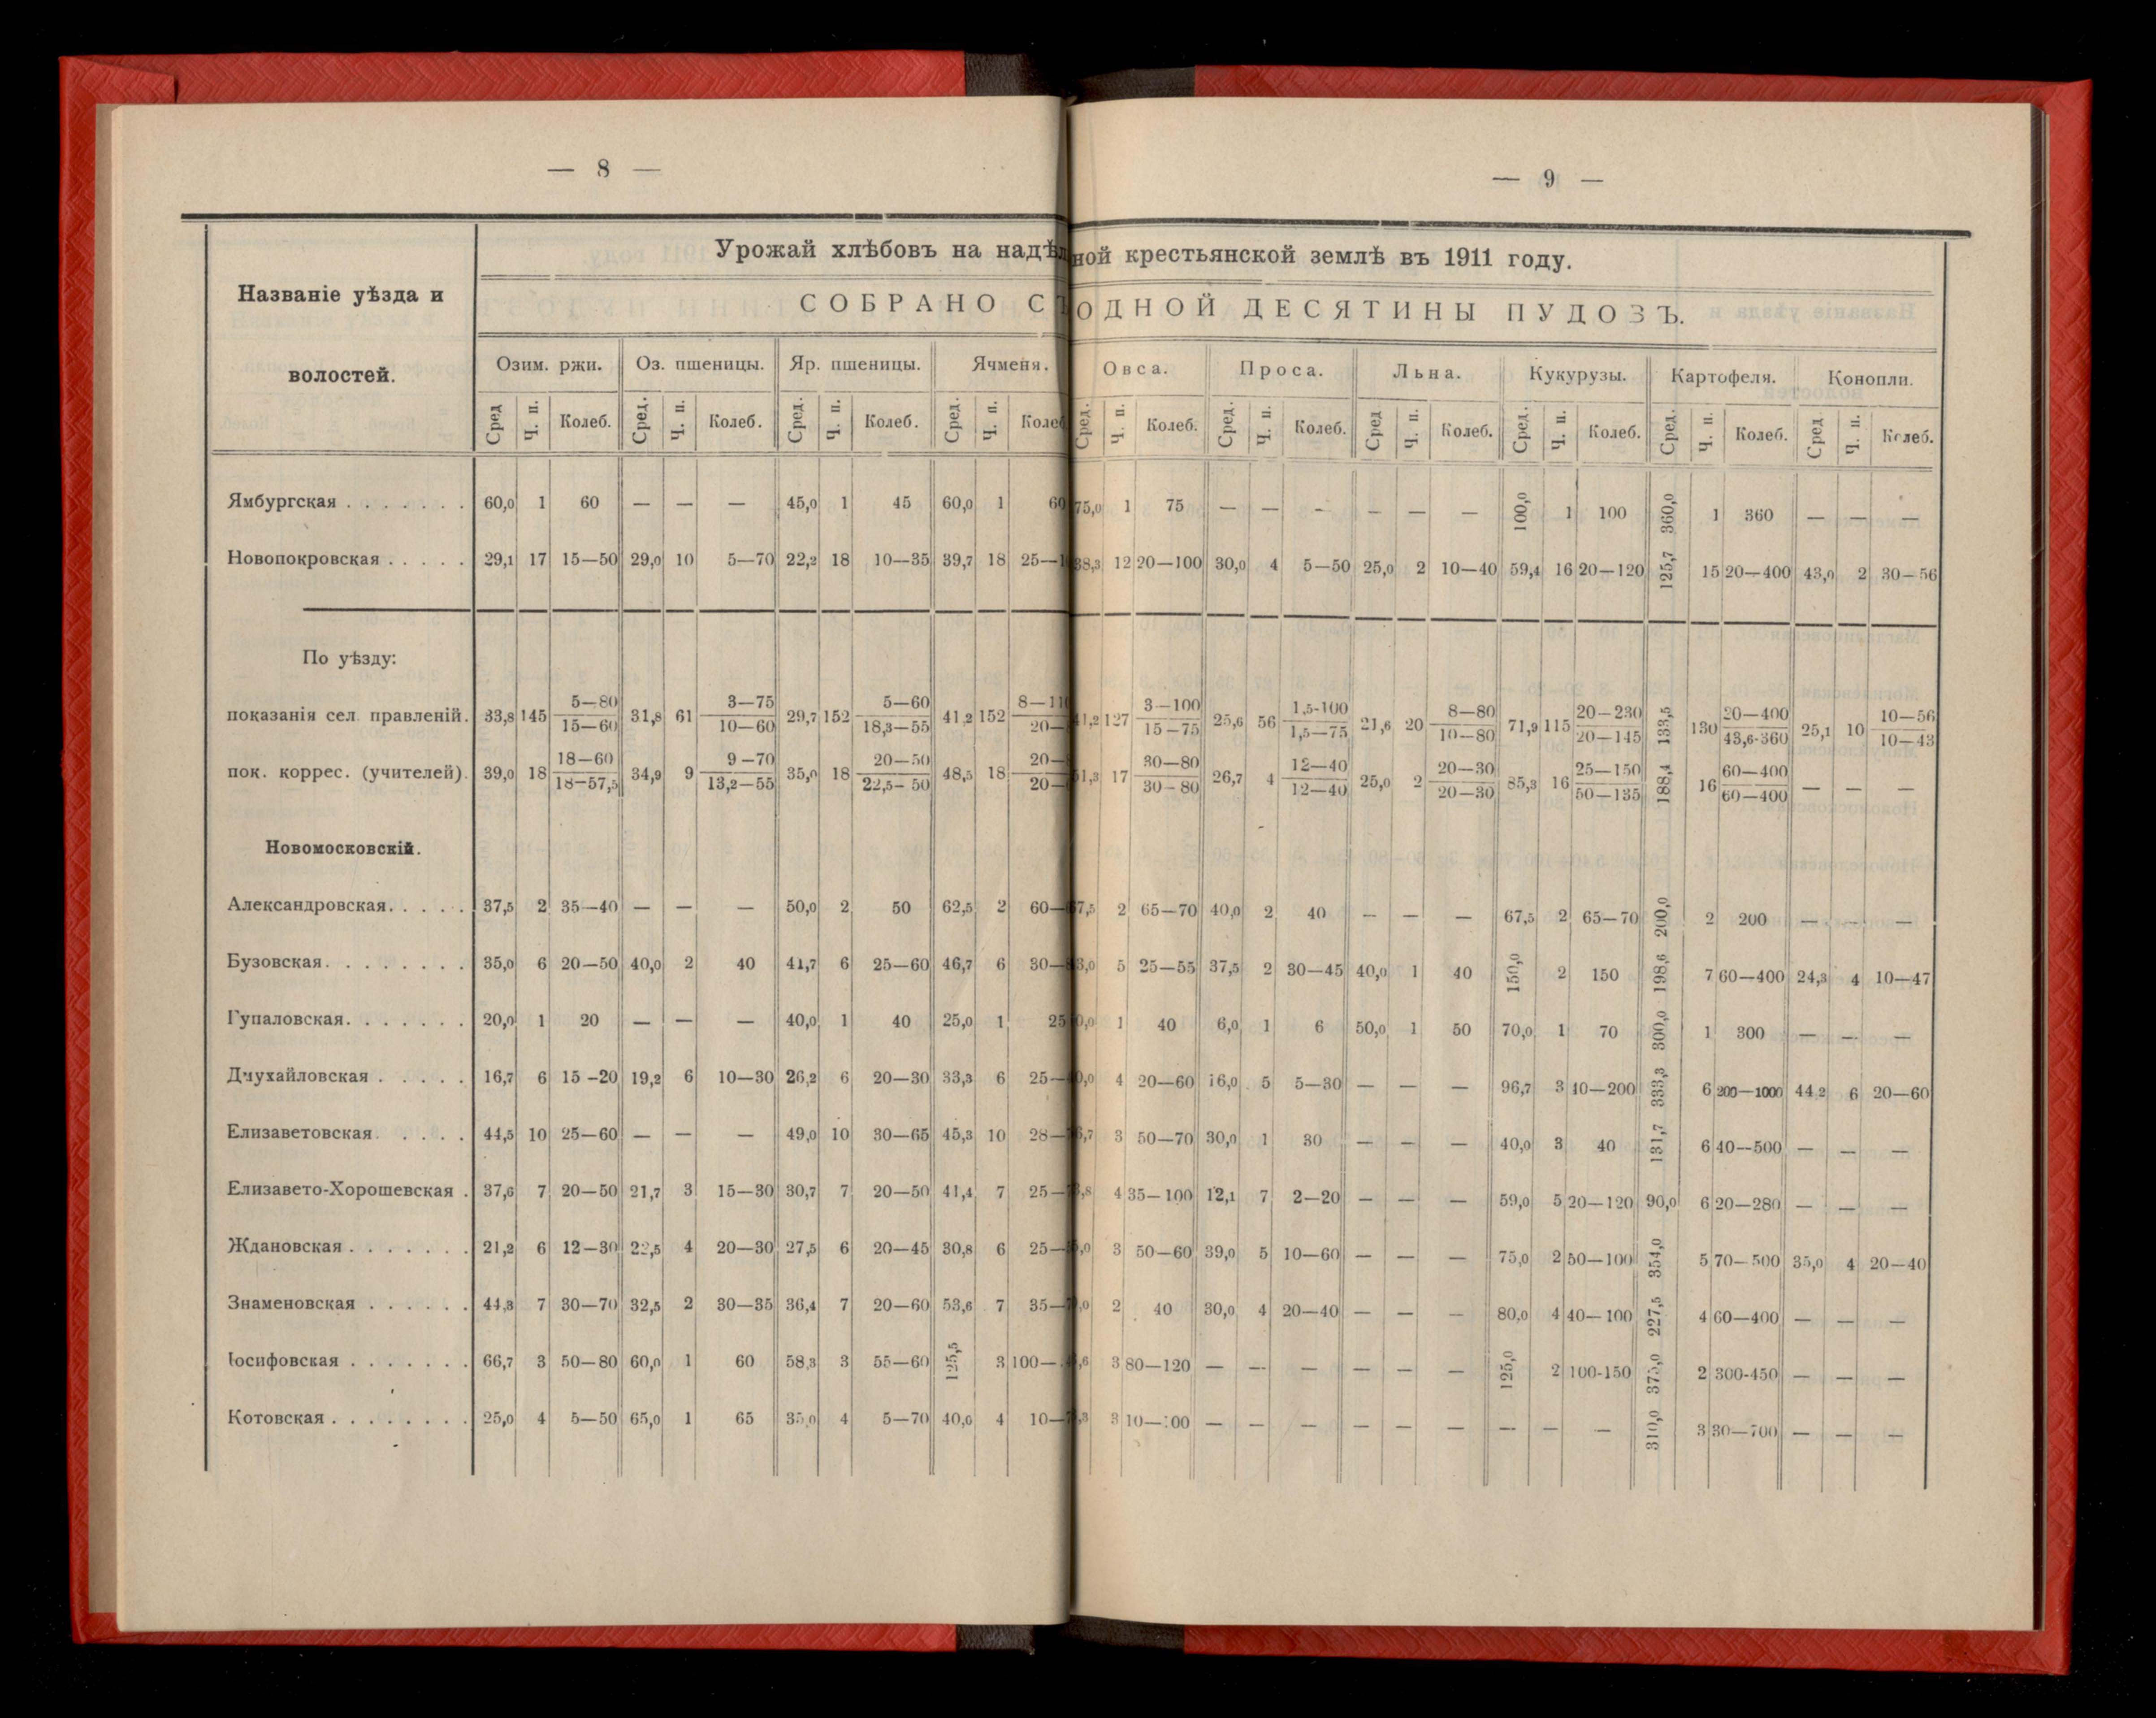 — 8 —
— 9 —
Названіе уѣзда и волостей.
Урожай хлѣбовъ на надѣльной крестьянской землѣ въ 1911 году.
СОБРАНО СЪ ОДНОЙ ДЕСЯТИНЫ ПУДОВЪ.
Озим. ржи. Оз. пшеницы. Яр. пшеницы. Ячменя. Овса. Проса. Льна. Кукурузы. Картофеля. Конопли.
Сред Ч. п. Колеб. Сред. Ч. п. Колеб. Сред. Ч. п. Колеб. Сред. Ч. п. Сред. Ч. п. Колеб. Сред. Ч. п. Колеб. Сред Ч. п. Колеб. Сред. Ч. п. Колеб. Сред. Ч. п. Колеб. Сред Ч. п. Колеб.
Ямбургская . . . . . . . 60,0 1 60 — — — 45,0 1 45 60,0 1 60 75,0 1 75 — — — — — — 100,0 1 100 360,0 1 360 — — —
Новопокровская . . . . . 29,1 17 15—50 29,0 10 5—70 22,2 18 10—35 39,7 18 38,3 12 20—100 30,0 4 5—50 25,0 2 10—40 59,4 16 20—120 125,7 15 20—400 43,0 2 30—56
По уѣзду:
показанія сел. правленій. 33,8 145 5—80 15—60 31,8 61 3—75 10—60 29,7 152 5—60 18,3—55 41,2 152 127 3—100 15—75 25,6 56 1,5-100 1,5—75 21,6 20 8—80 10—80 71,9 115 20—230 20—145 133,5 130 20—400 43,6-360 25,1 10 10—56 10—43
пок. коррес. (учителей). 39,0 18 18—60 18—57,5 34,9 9 9—70 13,2—55 35,0 18 20—50 22,5—50 48,5 18 17 30—80 30—80 26,7 4 12—40 12—40 25,0 2 20—30 20—30 85,3 16 25—150 50—135 188,4 16 60—400 60—400 — — —
Новомосковскій.
Александровская. . . . . 37,5 2 35—40 — — — 50,0 2 50 62,5 2 2 65—70 40,0 2 40 — — — 67,5 2 65—70 200,0 2 200 — — —
Бузовская. . . . . . . . 35,0 6 20—50 40,0 2 40 41,7 6 25—60 46,7 6 5 25—55 37,5 2 30—45 40,0 1 40 150,0 2 150 198,6 7 60—400 24,3 4 10—47
Гупаловская. . . . . . . 20,0 1 20 — — — 40,0 1 40 25,0 1 25 1 40 6,0 1 6 50,0 1 50 70,0 1 70 300,0 1 300 — — —
Дмухайловская . . . . . 16,7 6 15—20 19,2 6 10—30 26,2 6 20—30 33,3 6 4 20—60 16,0 5 5—30 — — — 96,7 3 40—200 333,3 6 200—1000 44,2 6 20—60
Елизаветовская. . . . . 44,5 10 25—60 — — — 49,0 10 30—65 45,3 10 3 50—70 30,0 1 30 — — — 40,0 3 40 131,7 6 40—500 — — —
Елизавето-Хорошевская . 37,6 7 20—50 21,7 3 15—30 30,7 7 20—50 41,4 7 4 35—100 12,1 7 2—20 — — — 59,0 5 20—120 90,0 6 20—280 — — —
Ждановская . . . . . . . 21,2 6 12—30 22,5 4 20—30 27,5 6 20—45 30,8 6 3 50—60 39,0 5 10—60 — — — 75,0 2 50—100 354,0 5 70—500 35,0 4 20—40
Знаменовская . . . . . . 44,3 7 30—70 32,5 2 30—35 36,4 7 20—60 53,6 7 2 40 30,0 4 20—40 — — — 80,0 4 40—100 227,5 4 60—400 — — —
Іосифовская . . . . . . . 66,7 3 50—80 60,0 1 60 58,3 3 55—60 125,5 3 3 80—120 — — — — — — 125,0 2 100-150 375,0 2 300-450 — — —
Котовская . . . . . . . . 25,0 4 5—50 65,0 1 65 35,0 4 5—70 40,0 4 3 10—100 — — — — — — — — — 310,0 3 30—700 — — —